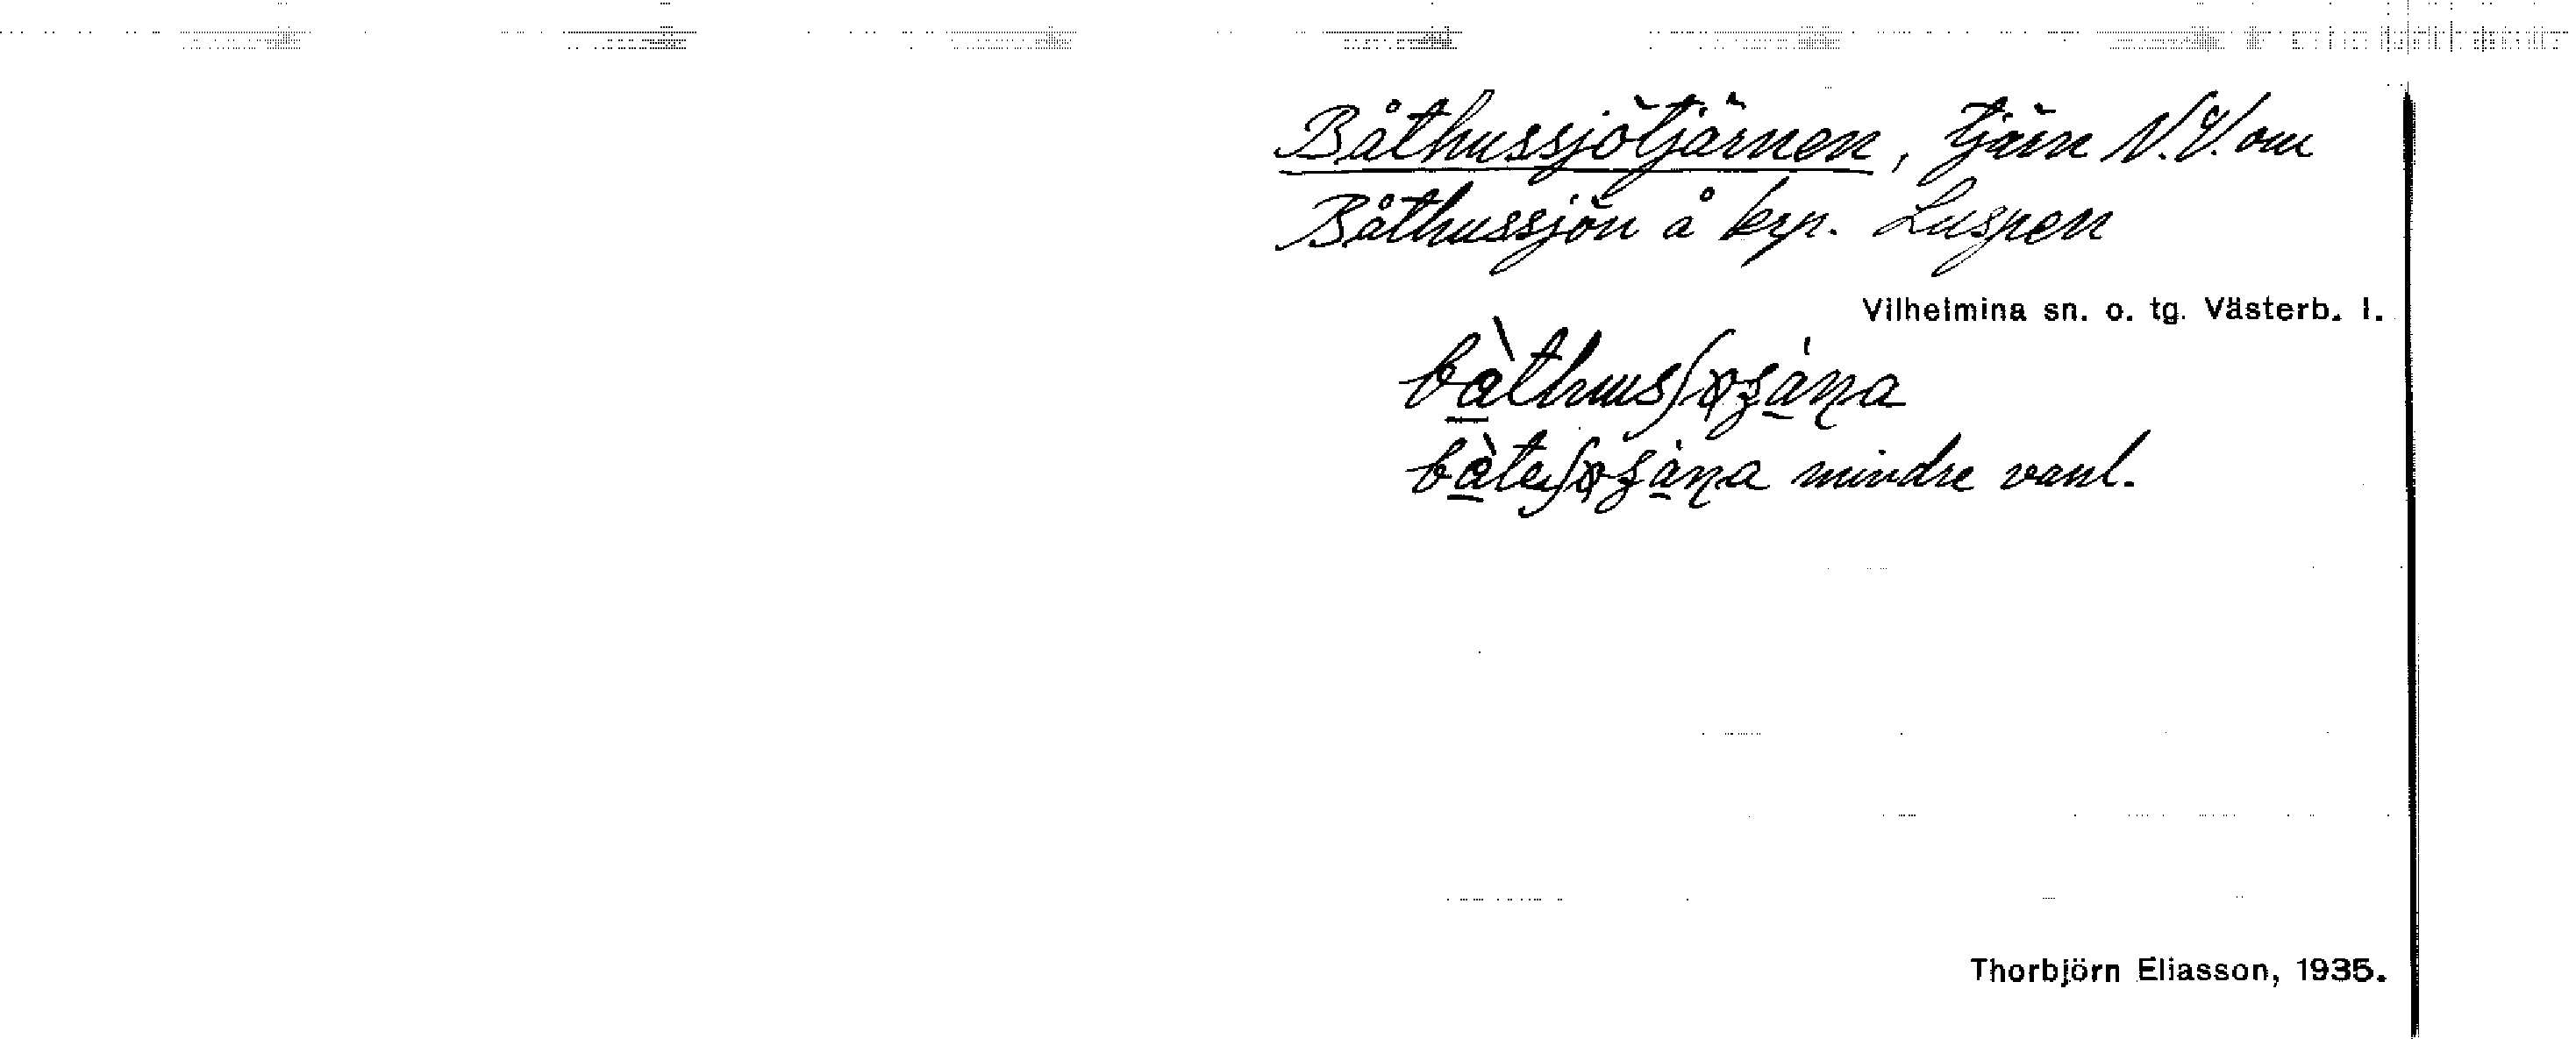 Båthussjötjärnen, tjärn N.V. om
Båthussjön å krp. Luspen
Vilhelmina sn. o. tg. Västerb. l.
mindre vanl.
Thorbjörn Eliasson, 1935.